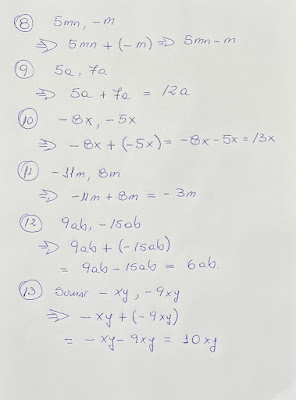 8 5mn, -m
⇒ 5mn + (-m) ⇒ 5mn - m
9 5a, 7a
⇒ 5a + 7a = 12a
10 -8x, -5x
⇒ -8x + (-5x) = -8x - 5x = 13x
11 -11m, 8m
⇒ -11m + 8m = -3m
12 9ab, -15ab
⇒ 9ab + (-15ab)
= 9ab - 15ab = 6ab.
13 Sumar - xy, -9xy
⇒ -xy + (-9xy)
= -xy - 9xy = 10xy